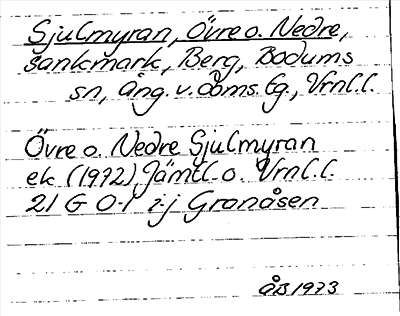 Sjulmyran, Övre o. Nedre,
sankmark, Berg, Bodums
sn, Ång. v. doms. lg., Vrnl. l.
Övre o. Nedre Sjulmyran
ek (1972) Jämtl. o. Vrnl. l.
21 G 0-1 i-j Granåsen
ÅB 1973